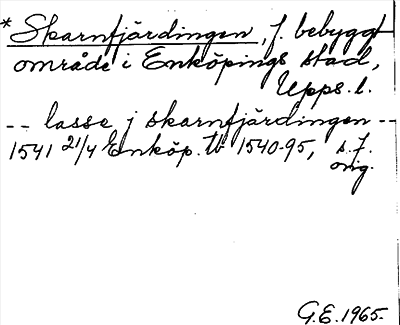 * Skarnfjärdingen, f. bebyggt
område i Enköpings stad,
Upps. l.
-- lasse j skarnfjärdingen --
1541 21/4 Enköp. tb 1540-95, s. 7.
orig.
G.E. 1965.